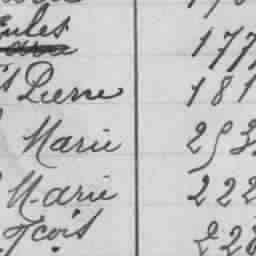 Jules 177
St Pierre 181
Marie 253
Marie 222
Fcois 228